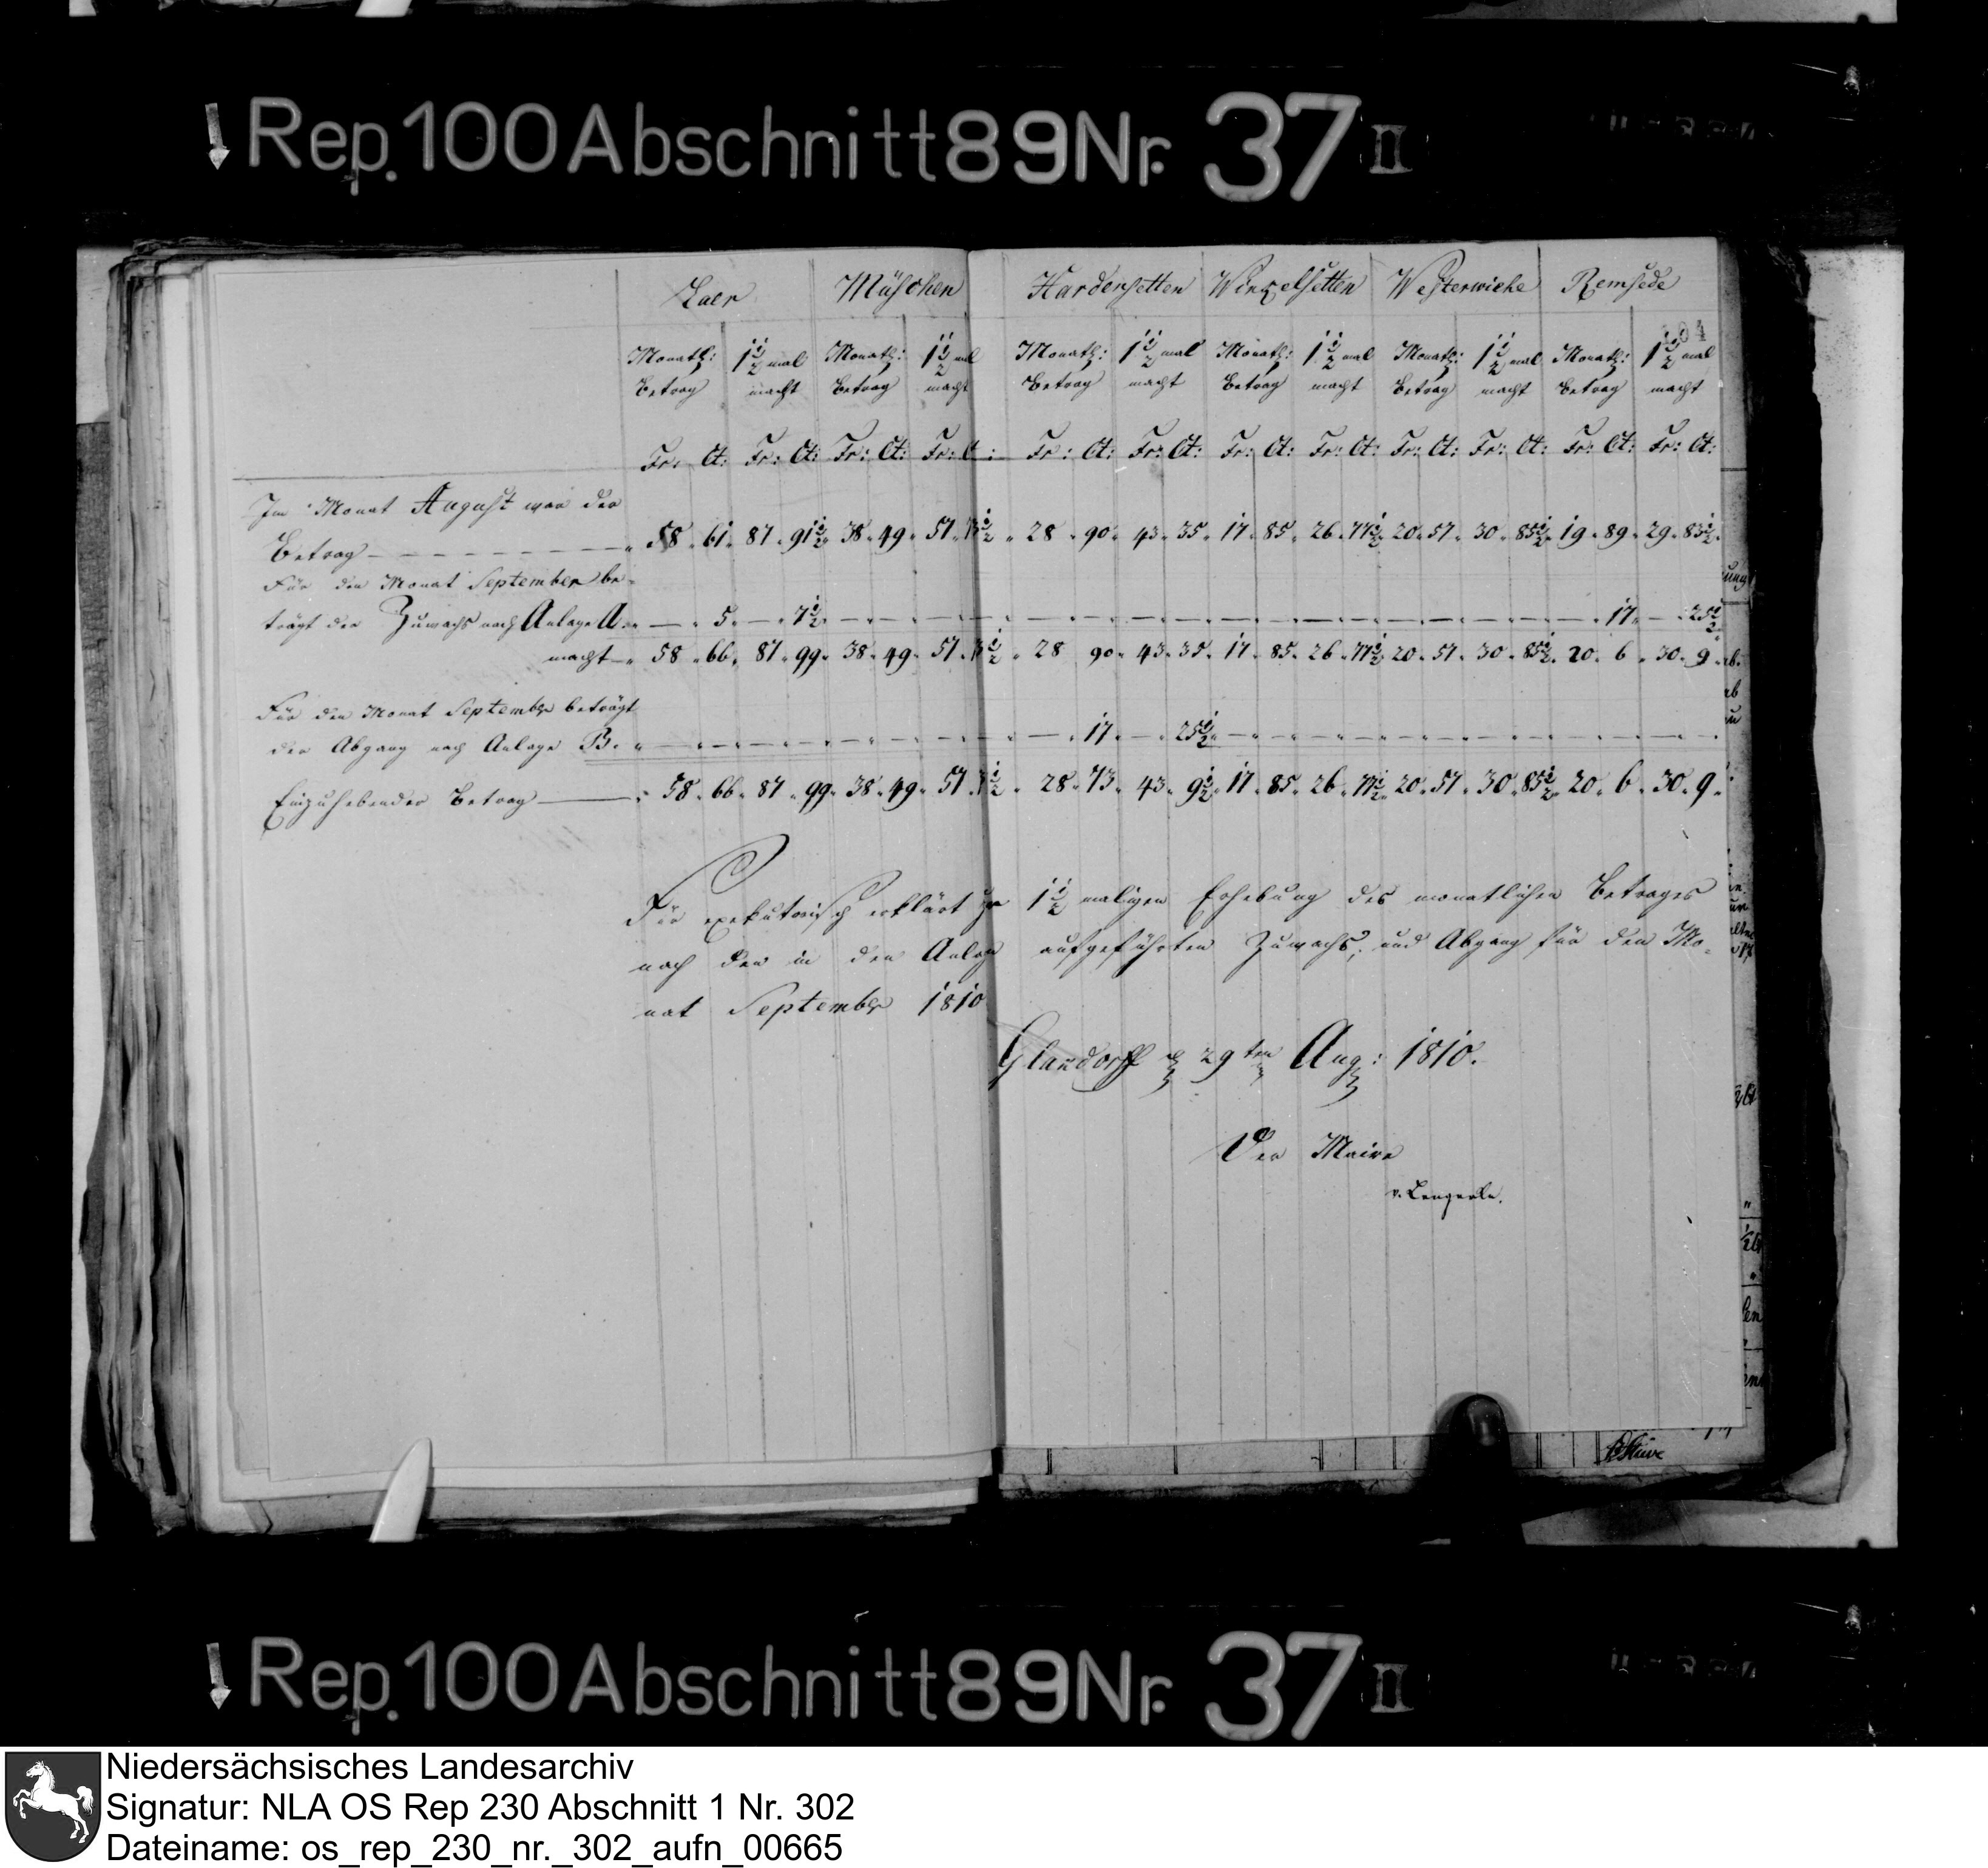 Rep. 100 Abschnitt 89 Nr. 37 II
Laer Müschen Hardensetten Winkelsetten Westerwiehe Remsede
104
Monatl: 1 1/2 mal Monatl: 1 1/2 mal Monatl: 1 1/2 mal Monatl: 1 1/2 mal Monatl: 1 1/2 mal Monatl: 1 1/2 mal
Betrag macht Betrag macht Betrag macht Betrag macht Betrag macht Betrag macht
Fr: Ct: Fr: Ct: Fr: Ct: Fr: C : Fr: Ct: Fr: Ct: Fr: Ct: Fr: Ct: Fr: Ct: Fr: Ct: Fr: Ct: Fr: Ct:
Im Monat August war der
Betrag 58 61 87 91 1/2 38 49 57 73 1/2 28 90 43 35 17 85 26 77 1/2 20 57 30 85 1/2 19 89 29 83 1/2
Für den Monat September be-
trägt der Zuwachs nach Anlage A. — 5 — 7 1/2 — 17 — 25 1/2
macht 58 66 87 99 38 49 57 73 1/2 28 90 43 35 17 85 26 77 1/2 20 57 30 85 1/2 20 6 30 9
Für den Monat September beträgt
der Abgang nach Anlage B. — 17 — 25 1/2 —
Einzuhebender Betrag 58 66 87 99 38 49 57 73 1/2 28 73 43 9 1/2 17 85 26 77 1/2 20 57 30 85 1/2 20 6 30 9
Für exekutorisch erklärt zur 1 1/2 maligen Erhebung des monatlichen Betrages
nach den in den Anlagen aufgeführten Zuwachs, und Abgang für den Mo-
nat September 1810
Glandorff 29ten Aug: 1810.
Der Maire
v. Lengerke.
Rep. 100 Abschnitt 89 Nr. 37 II
Niedersächsisches Landesarchiv
Signatur: NLA OS Rep 230 Abschnitt 1 Nr. 302
Dateiname: os_rep_230_nr._302_aufn_00665